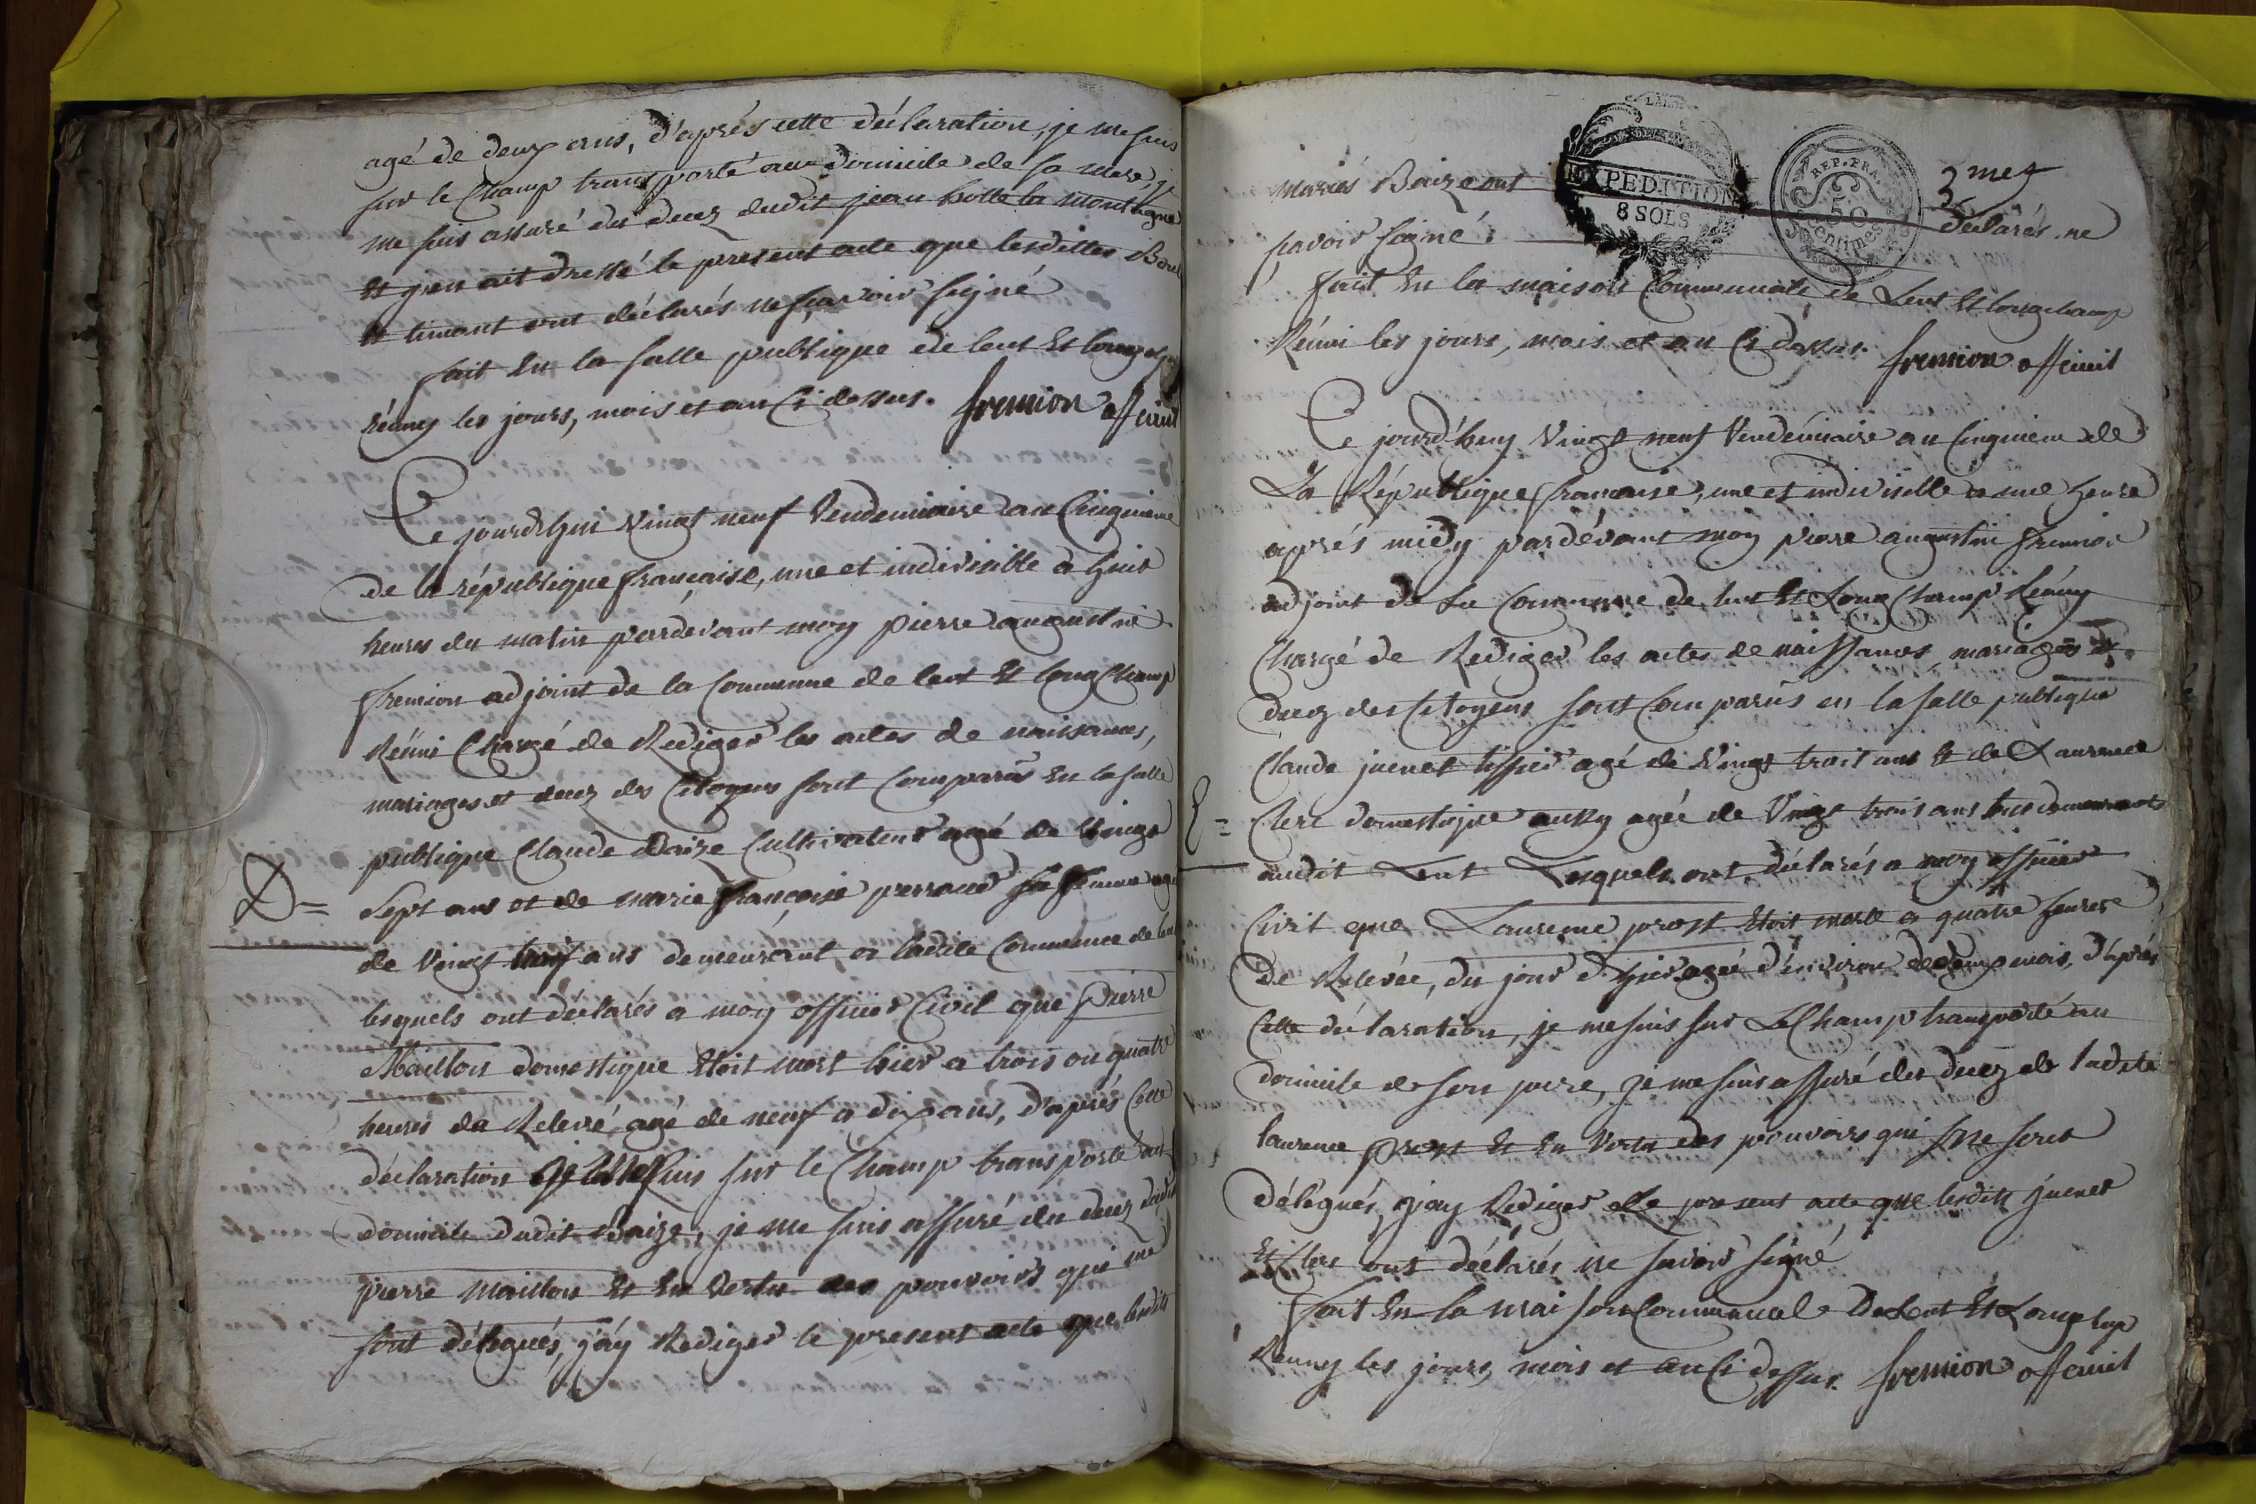 agé de deux ans, d'aprés cette déclaration, je me suis
sur le Champ transporté au domicile de sa mere, je
me suis assuré du decez dudit jean botte la montagne
Et j'en ait dressé le present acte que lesdittes
Et timant ont déclarés ne sçavoir signé
fait En la salle publique de lent Et
réuny les jours, mois et an Ci dessus. fremion off civil
Ce jourdhui Vingt neuf Vendemiaire an Cinquieme
de la république française, une et indivisible à huit
heures du matin pardevant moy pierre augustin
fremion adjoint de la Commune de lent Et longChamp
Réüni Chargé de Rediger les actes de naissances,
mariages et decez des Citoyens sont Comparus En la salle
publique Claude Baize Cultivateur agé de Vingt
D=
Sept ans et de marie françoise perraud sa femme agé
de Vingt trois ans demeurant a ladite Commune de lent
lesquels ont déclarés a moy officier Civil que Pierre
Maillon domestique Etoit mort hier a trois ou quatre
heures de Relevé, agé de neuf a dix ans, d'aprés Cette
déclaration Je me suis sur le Champ transporté au
domicile dudit Baize, je me suis assuré du decez dudit
pierre maillon Et En Vertu des pouvoirs qui me
sont délegués, j'ay Rediger le present acte que lesdits
EXPEDITION
8 SOLS
REP. FRA.
50
Centimes
3 mes
mariés Baize ont déclarés ne
savoir signé.
fait En la maison Communale de Lent Et longchamp
Réüni les jours, mois et an Ci dessus. fremion off civil
Ce jourd'huy Vingt neuf Vendémiaire an Cinquieme de
La République française, une et indivisible a une heure
aprés midy pardevant moy pierre augustin fremion
adjoint de La Commune de lent Et LongChamp Réüny
Chargé de Rediger les actes de naissances mariages &
decez des Citoyens sont Comparus en la salle publique
Claude juenet tissier agé de Vingt trois ans Et de Laurence
E=
Clerc domestique aussy agée de Vingt trois ans tous demeurants
audit Lent Lesquels ont déclarés a moy officier
Civil que Laurence prost Etoit morte a quatre heures
De Relevée, du jour d'hier agée d'environ de deux mois, d'aprés
Cette déclaration, je me suis sur Le Champ transporté au
domicile de son pere, je me suis assuré du decez de ladite
laurence prost Et En Vertu des pouvoirs qui me sont
délegués, j'ay Rediger le present acte que lesdits juenet
Et Clerc ont déclarés ne savoir signé
fait En la maison Communal De Lent Et Longchp
Reuny les jours, mois et an Ci dessus. fremion off civil